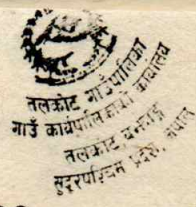 तलकोट गाउँपालिका
गाउँ कार्यपालिकाको कार्यालय
तलकोट बझाङ्ग
सुदूरपश्चिम प्रदेश, नेपाल